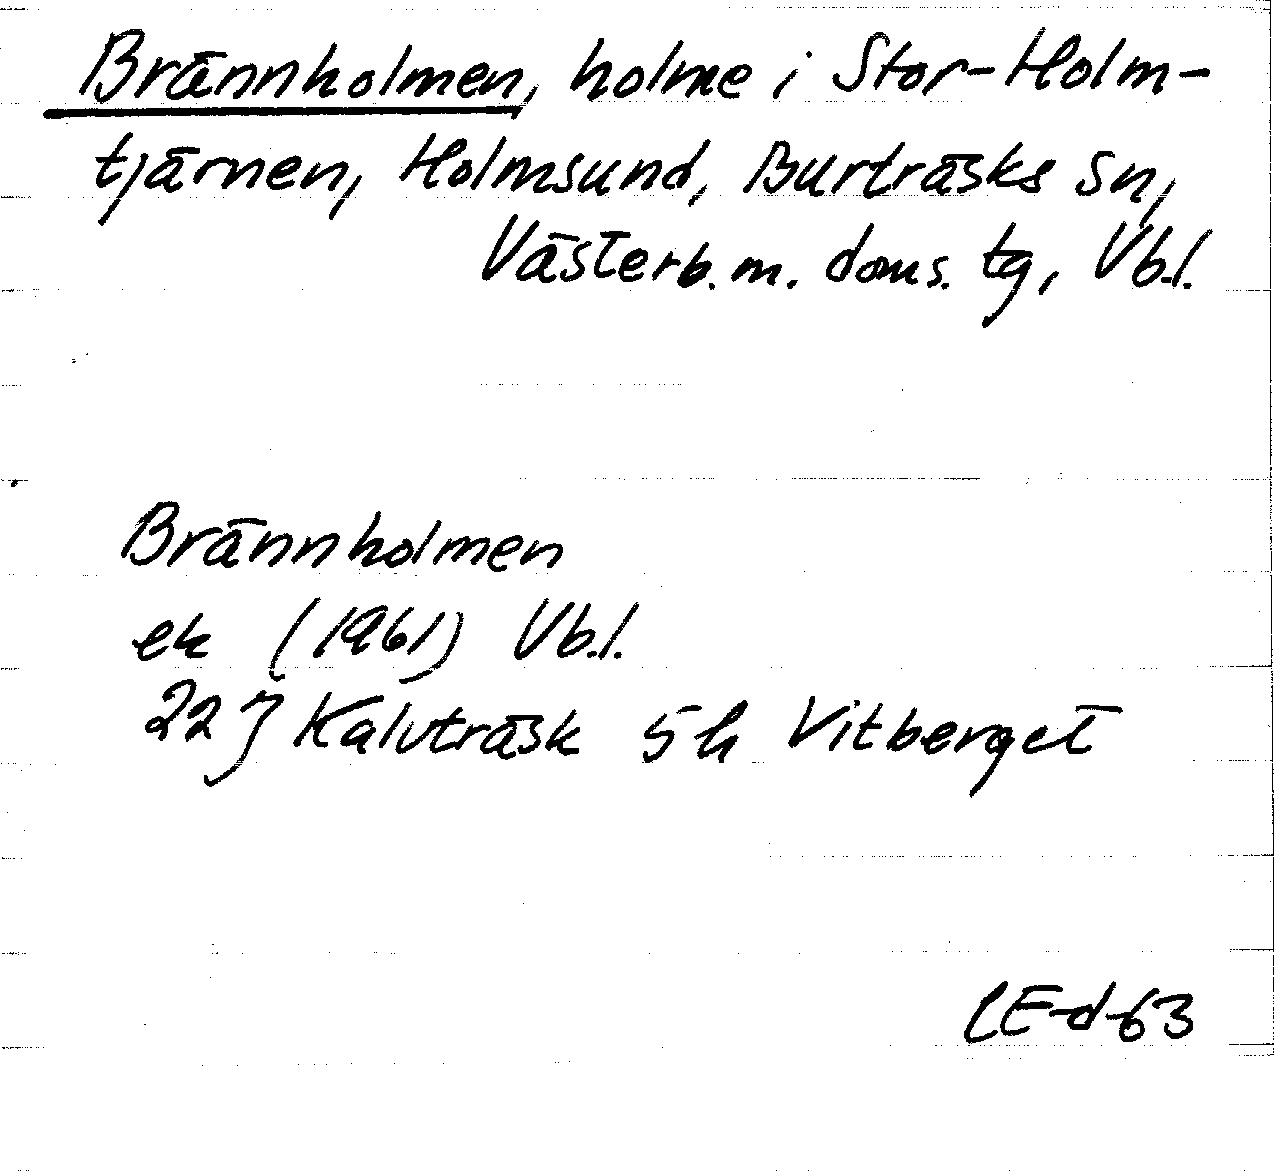 Brännholmen, holme i Stor-Holm-
tjärnen, Holmsund, Burträsks sn,
Västerb. m. doms. tg, Vb.l.
Brännholmen
ek (1961) Vb.l.
22 J Kalvträsk 5h Vitberget
CE-d-63